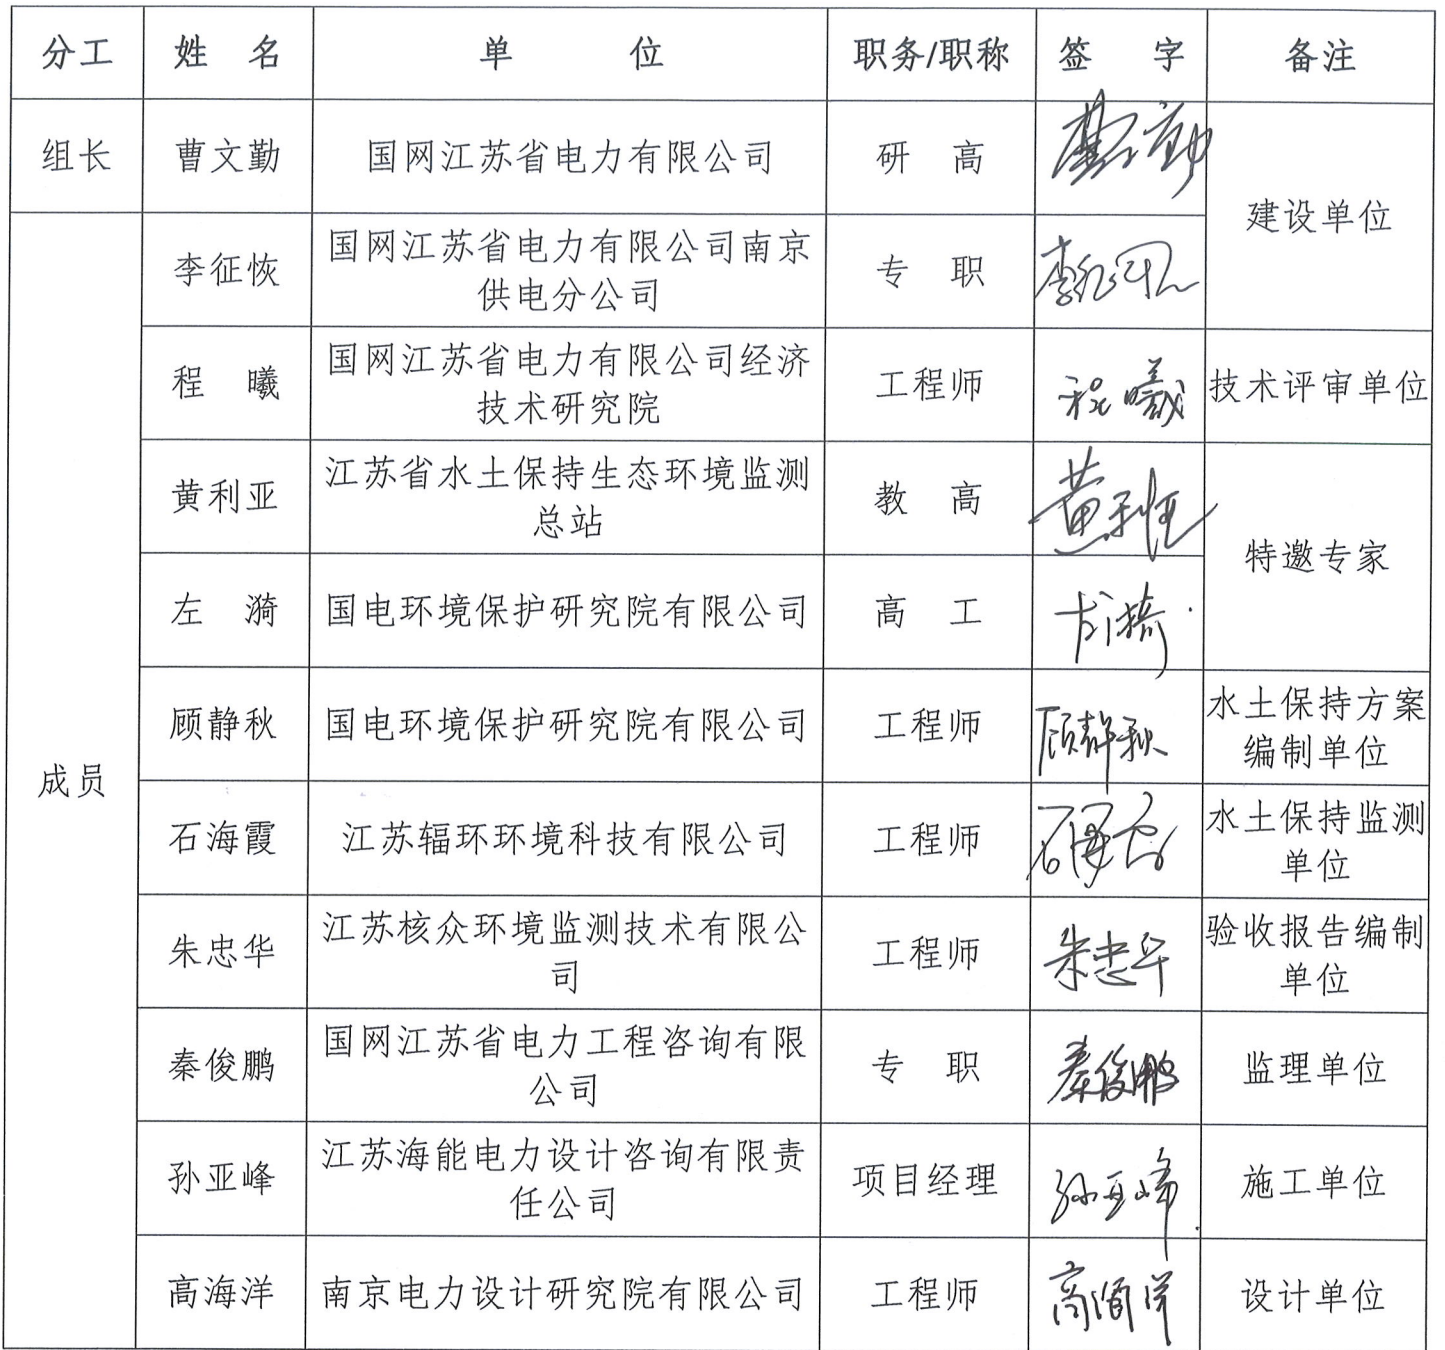 分工 姓 名 单 位 职务/职称 签 字 备注
组长 曹文勤 国网江苏省电力有限公司 研 高 曹文勤
建设单位
李征恢 国网江苏省电力有限公司南京
供电分公司 专 职 李征恢
程 曦 国网江苏省电力有限公司经济
技术研究院 工程师 程曦 技术评审单位
黄利亚 江苏省水土保持生态环境监测
总站 教 高 黄利亚
特邀专家
左 漪 国电环境保护研究院有限公司 高 工 左漪
成员
顾静秋 国电环境保护研究院有限公司 工程师 顾静秋 水土保持方案
编制单位
石海霞 江苏辐环环境科技有限公司 工程师 石海霞 水土保持监测
单位
朱忠华 江苏核众环境监测技术有限公
司 工程师 朱忠华 验收报告编制
单位
秦俊鹏 国网江苏省电力工程咨询有限
公司 专 职 秦俊鹏 监理单位
孙亚峰 江苏海能电力设计咨询有限责
任公司 项目经理 孙亚峰 施工单位
高海洋 南京电力设计研究院有限公司 工程师 高海洋 设计单位